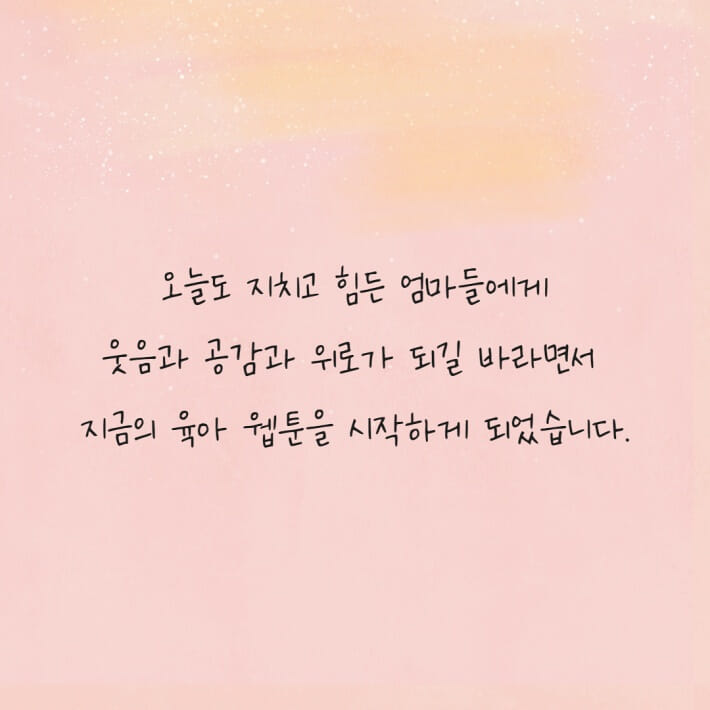 오늘도 지치고 힘든 엄마들에게
웃음과 공감과 위로가 되길 바라면서
지금의 육아 웹툰을 시작하게 되었습니다.